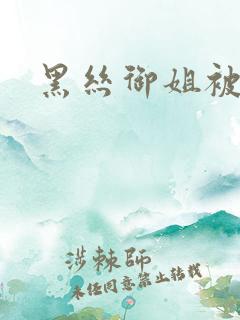 黑丝御姐被
涉棘師
未经同意禁止转载